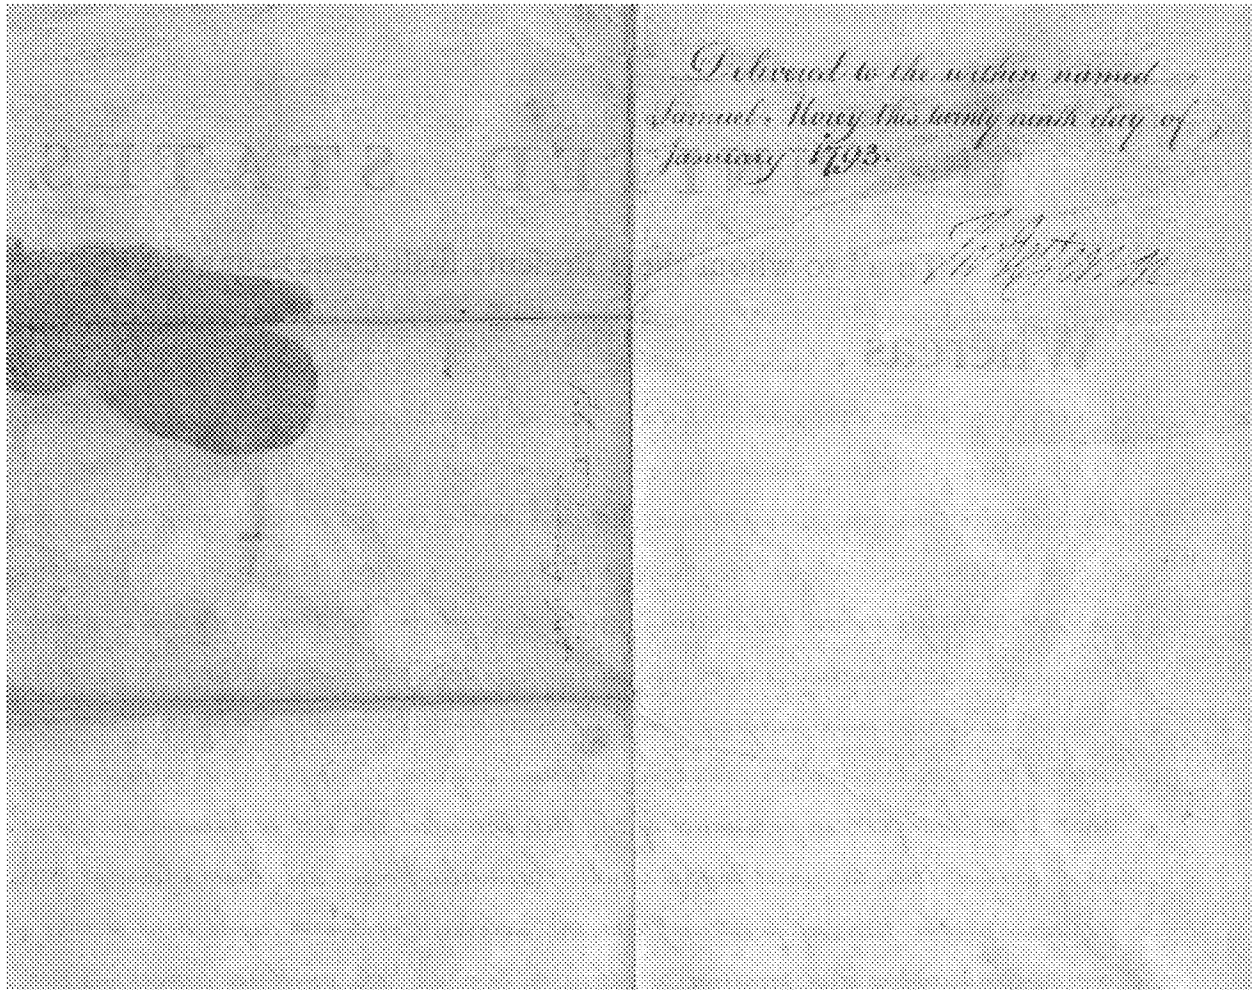 Delivered to the within named
Samuel Morey this twenty ninth day of
January 1793.